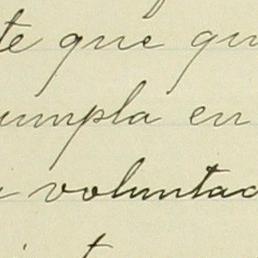 te que qu
umpla en
voluntad